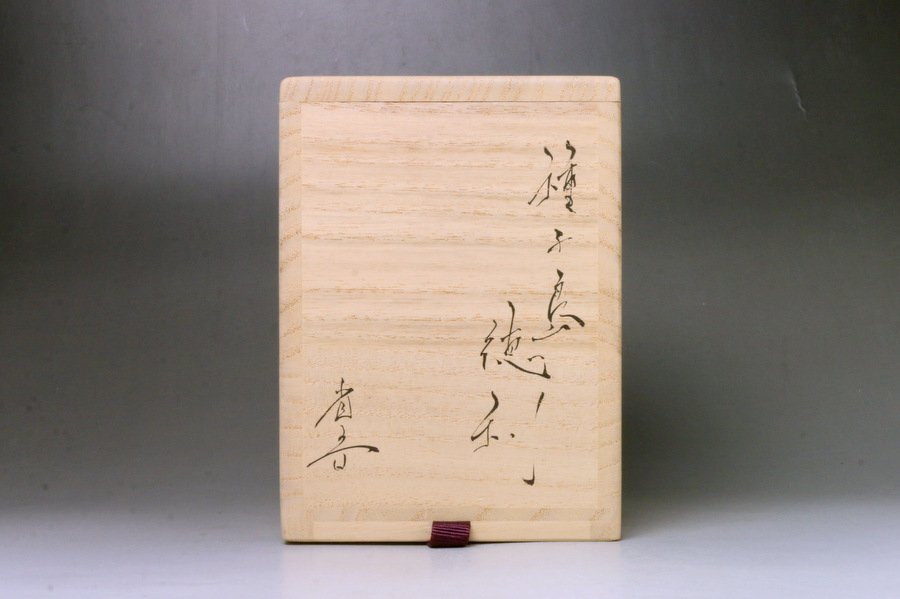 種子島
徳利
省吾